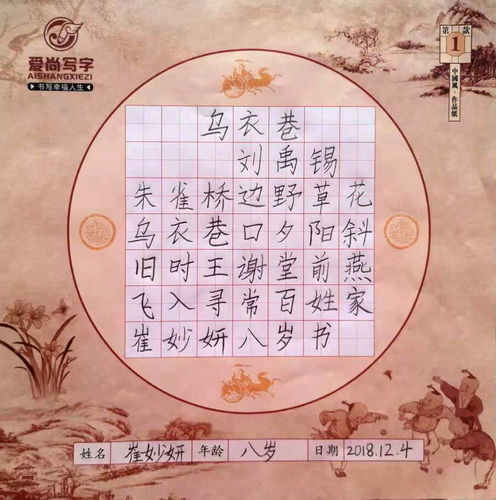 爱尚写字
AISHANGXIEZI
书写幸福人生
第一款
1
中國風·作品紙
乌衣巷
刘禹锡
朱雀桥边野草花
乌衣巷口夕阳斜
旧时王谢堂前燕
飞入寻常百姓家
崔妙妍八岁书
姓名 崔妙妍 年龄 八岁 日期 2018.12.4